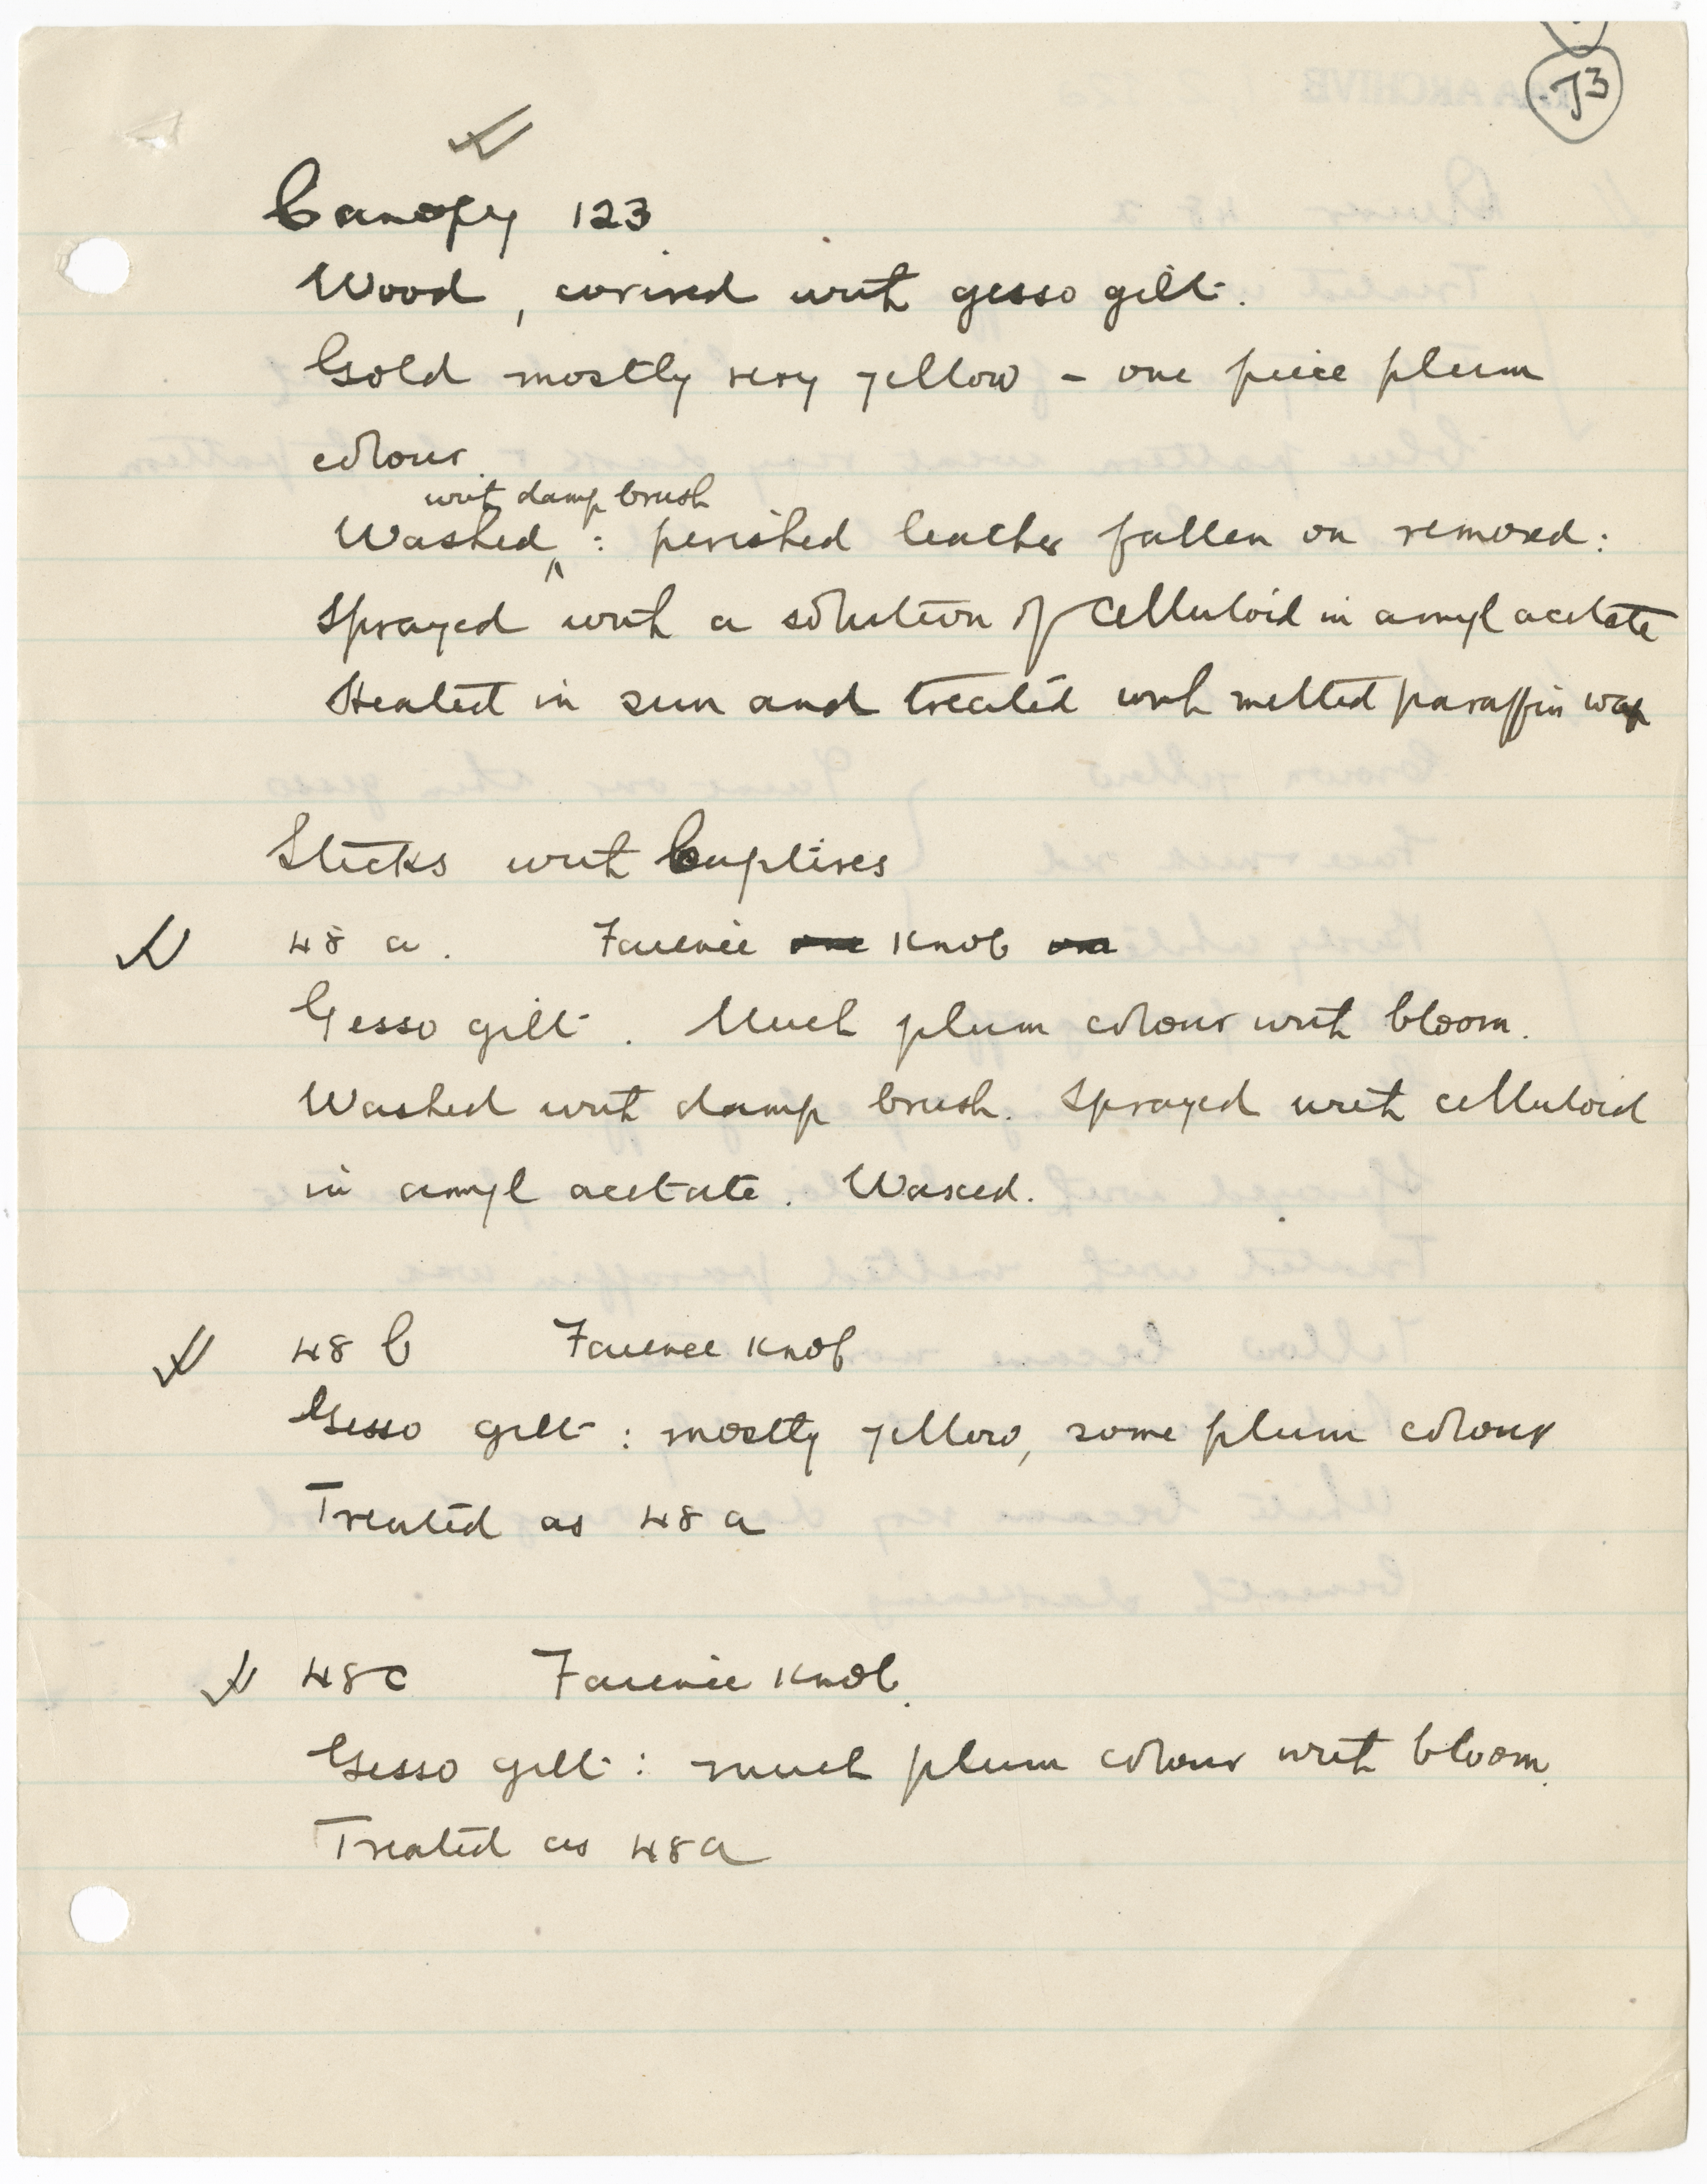 J3
Canopy 123
Wood, covered with gesso gilt.
Gold mostly very yellow - one piece plum
colour.
with damp brush
Washed ^ : perished leather fallen on removed:
Sprayed with a solution of celluloid in amyl acetate
Heated in sun and treated with melted paraffin wax
Sticks with Captives
48 a. Faience one Knob on
Gesso gilt. Much plum colour with bloom.
Washed with damp brush. Sprayed with celluloid
in amyl acetate. Waxed.
48 b Faience Knob
Gesso gilt: mostly yellow, some plum colour
Treated as 48 a
48c Faience Knob.
Gesso gilt: much plum colour with bloom.
Treated as 48a